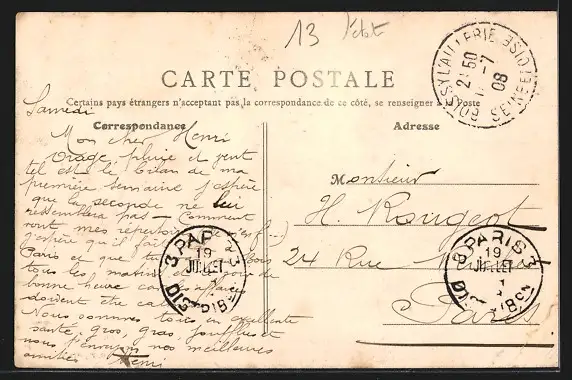 13 l'état
CARTE POSTALE
Certains pays étrangers n'acceptent pas la correspondance de ce côté, se renseigner à la Poste
Correspondance
Adresse
Samedi
Mon cher Henri
Orage, pluie et vent
tel est le bilan de ma
première semaine j'espère
que la seconde ne lui
ressemblera pas — Comment
vont mes
j'espère qu'il fait
Paris et que tu
tous les matins
bonne heure car les affaires
doivent être
Nous sommes tous en excellente
santé, gros, gras, joufflus et
nous t'envoyons nos meilleures
amitiés Henri
Monsieur
H. Rougeot
24 Rue
Paris
21 50
-7
08
SEINE ET OISE
3 PARIS 3
19
JUILLET
DISTRIBON
8 PARIS 3
19
JUILLET
DISTRIBON